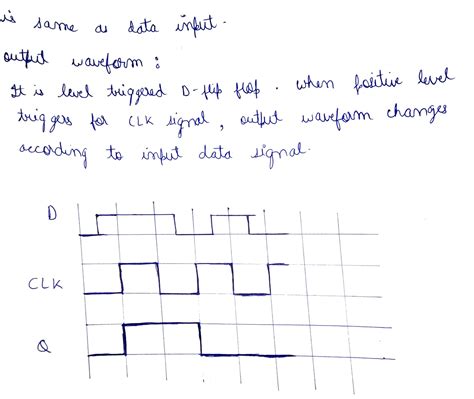 is same as data input.
output waveform :
It is level triggered D-flip flop. when positive level
triggers for CLK signal, output waveform changes
according to input data signal.
D
CLK
Q